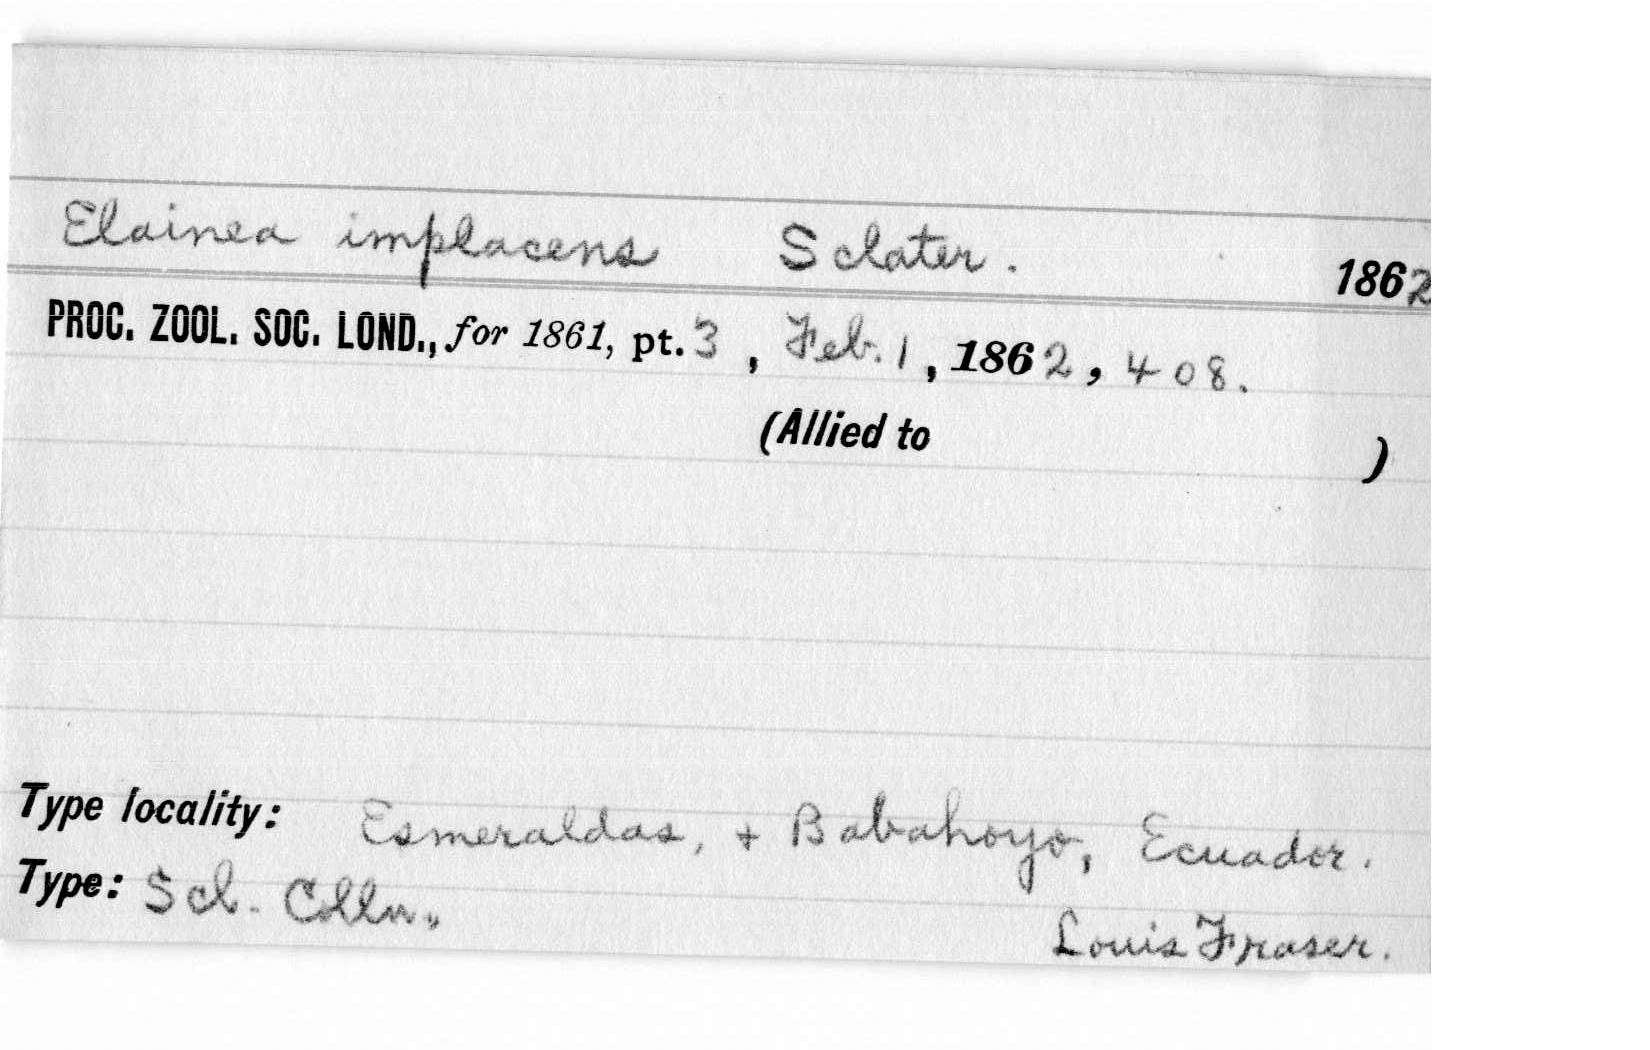 Elainea implacens Sclater. 1862
PROC. ZOOL. SOC. LOND., for 1861, pt. 3, Feb. 1, 1862, 408.
(Allied to )
Type locality: Esmeraldas, + Babahoyo, Ecuador.
Type: Scl. Colln.
Louis Fraser.